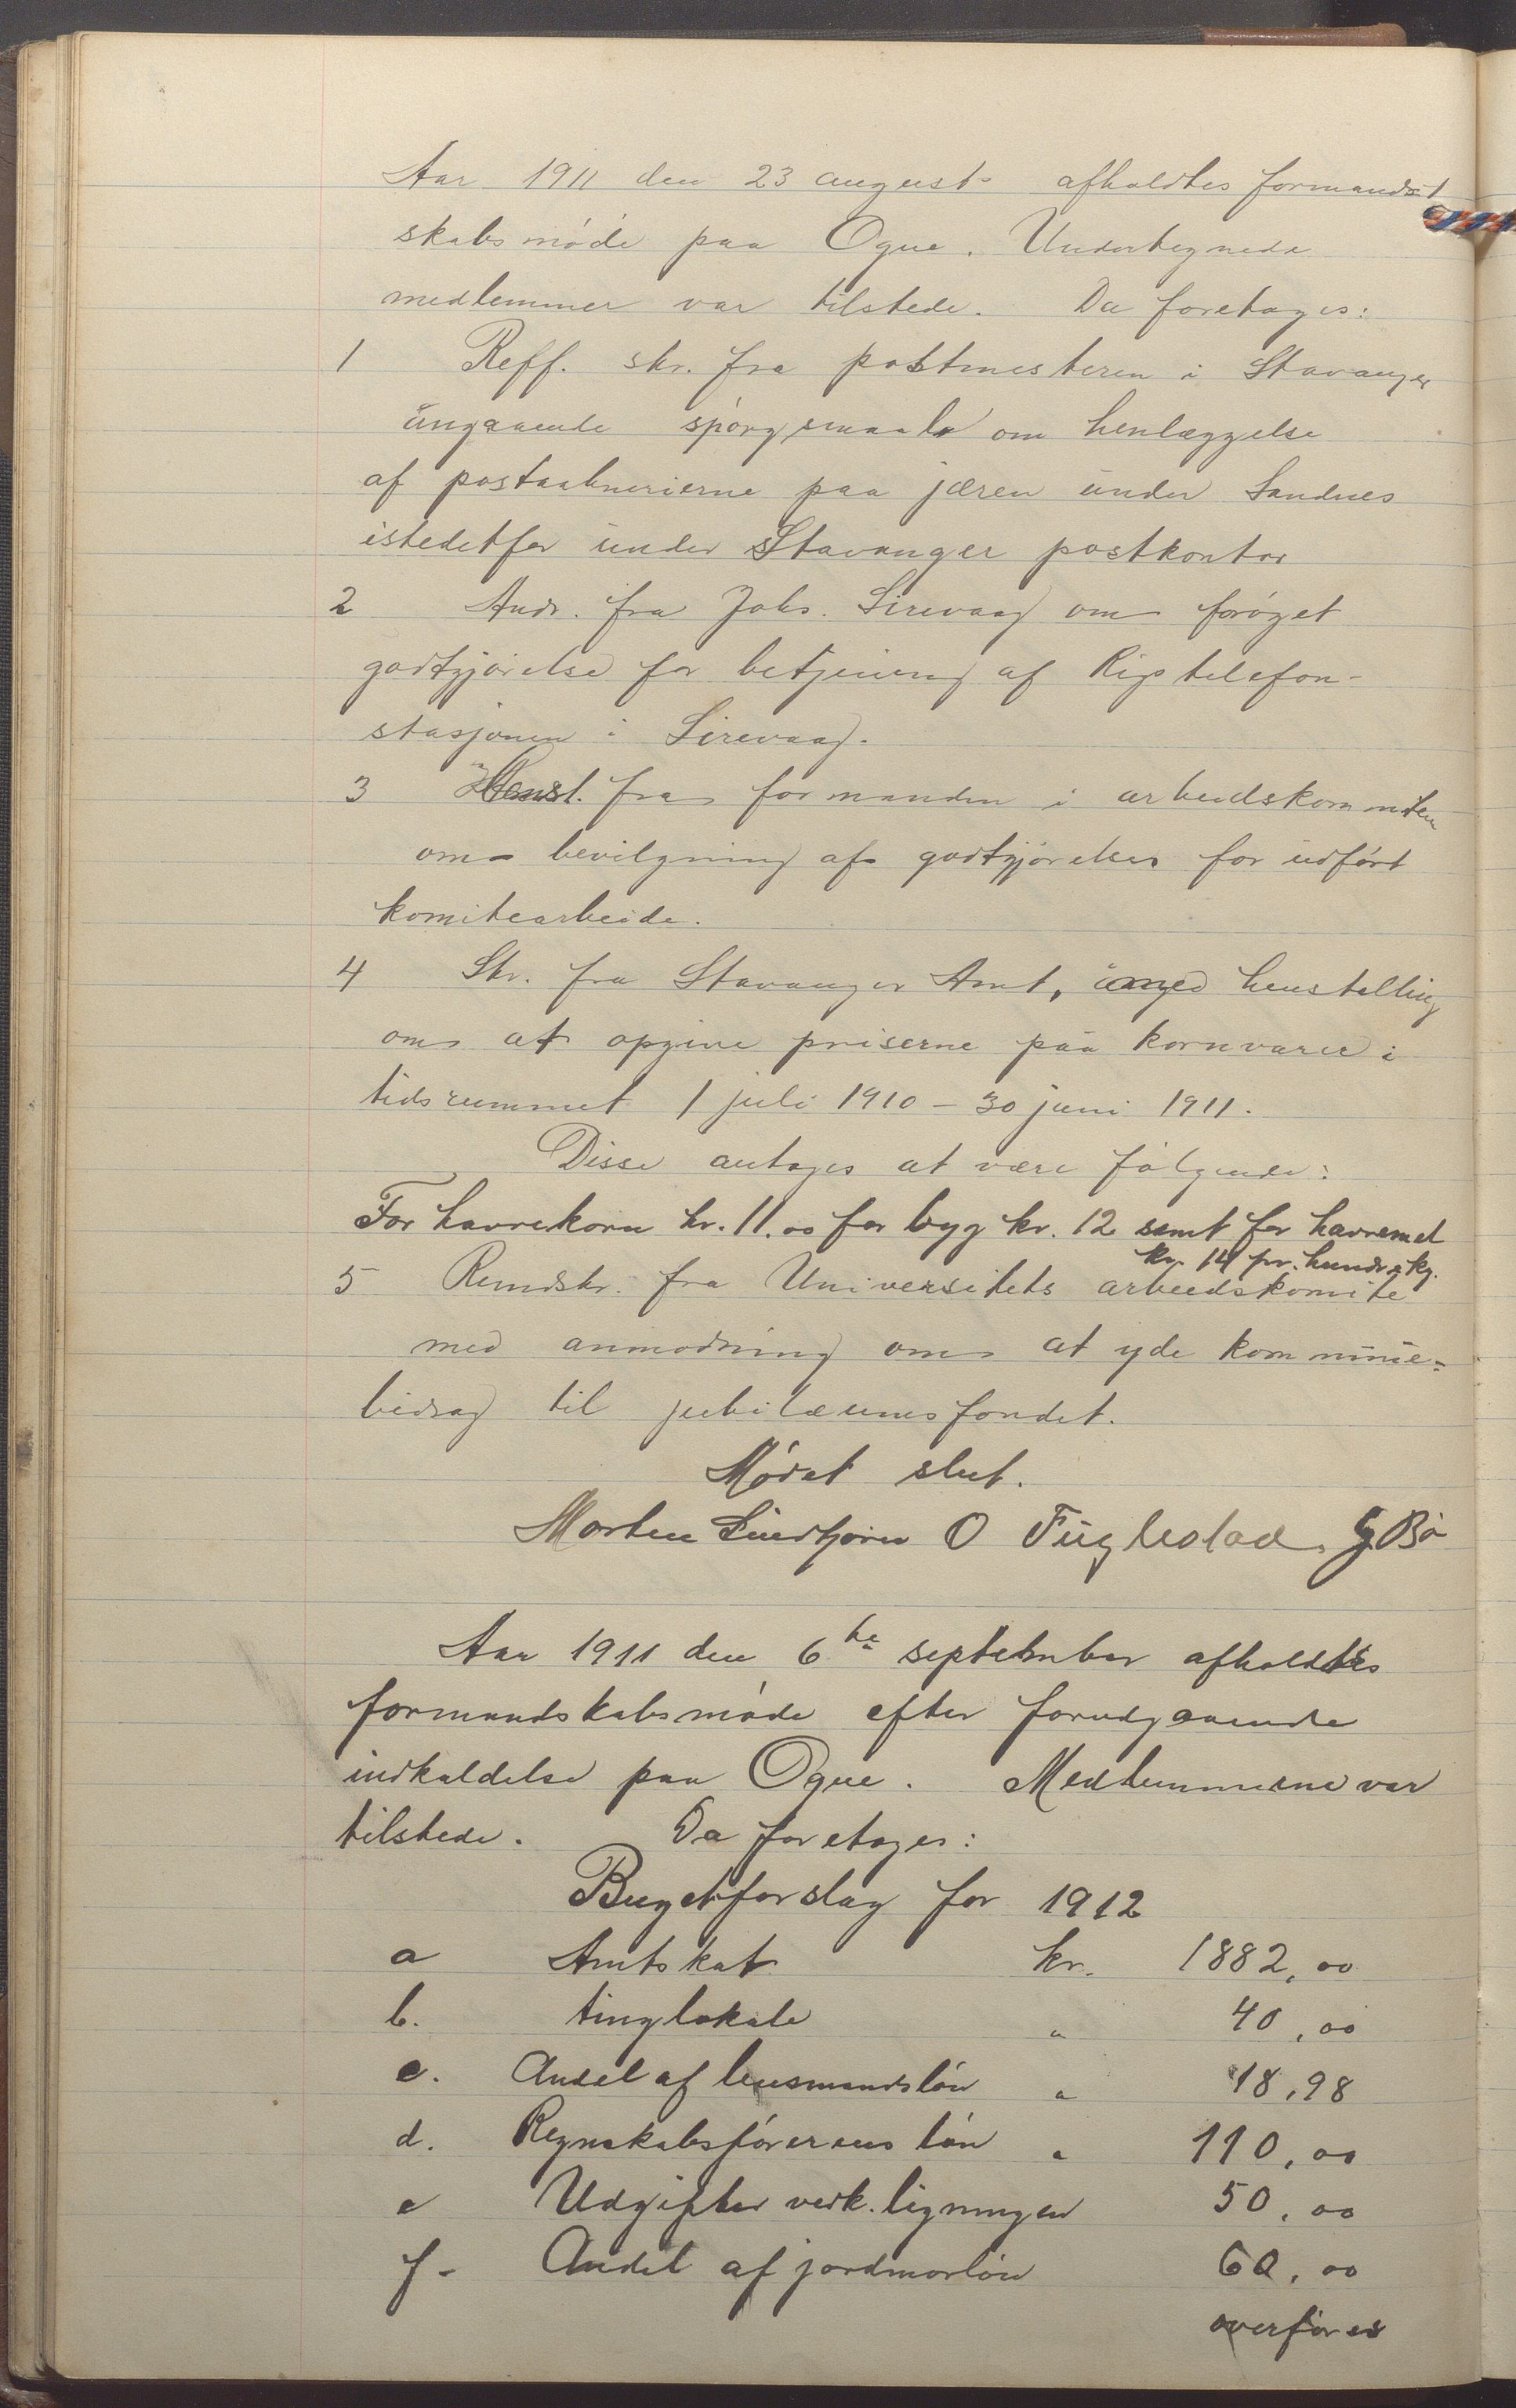 Aar 1911 den 23 august afholdtes formand
skabsmøde paa Ogne. Undertegnede
medlemmer var tilstede. Da foretages:
1 Reff. skr. fra postmesteren i Stavanger
angaaende spørgsmaal om henlæggelse
af postaabnerierne paa jæren under Sandnes
istedetfor under Stavanger postkontor
2 Andr. fra Johs. Sirevaag om forøget
godtgjørelse for betjening af Rigstelefon-
stasjonen i Sirevaag.
3 Henst. fra formanden i arbeidskommiteen
om bevilgning af godtgjørelse for udført
komitearbeide.
4 Skr. fra Stavanger Amt, med henstilling
om at opgive priserne paa kornvarer i
tidsrummet 1 juli 1910 – 30 juni 1911.
Disse antages at være følgende:
For havrekorn kr. 11.00 for byg kr. 12 samt for havremel
kr. 14 pr. hundre kg.
5 Rundskr. fra Universitets arbeidskomite
med anmodning om at yde kommune-
bidrag til jubilæumsfondet.
Mødet slut.
Morten O Fuglestad. G Bø
Aar 1911 den 6te september afholdtes
formandskabsmøde efter forudgaaende
indkaldelse paa Ogne. Medlemmerne var
tilstede. Da foretages:
Bugetforslag for 1912
a Amtskat kr. 1882,00
b. tinglokale " 40,00
c. Andel af lensmandsløn " 18,98
d. Regnskabsførerens løn " 110,00
e Udgifter vedk. ligningen 50,00
f- Andel af jordmorløn 60,00
overføres